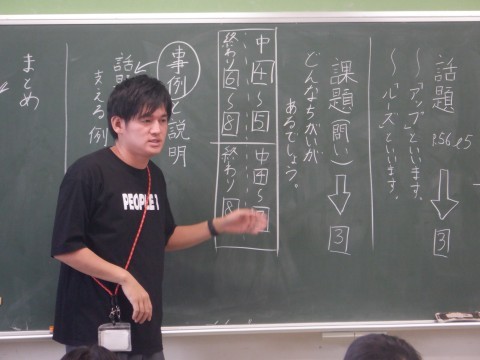 話題 P.56 l5
〜「アップ」といいます。
〜「ルーズ」といいます。
3
課題(問い)
3
どんなちがいが
あるでしょう。
中 4〜5
終わり 6〜8
中 4〜
終わり 8
事例 説明
話題
支える 例
まとめ
PEOPLE